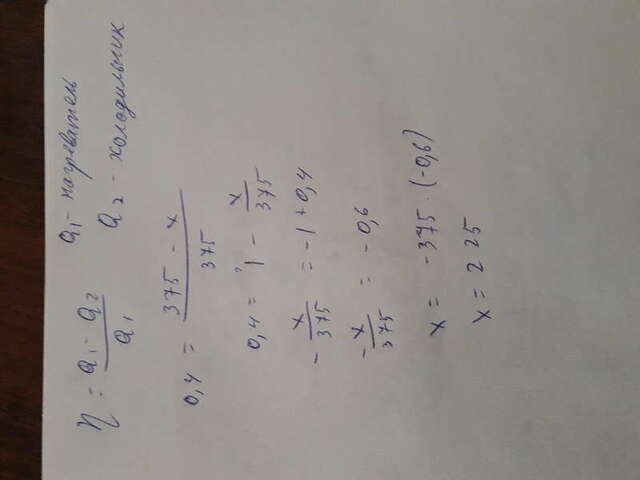 η = Q₁ - Q₂ / Q₁ Q₁ - нагреватель
Q₂ - холодильник
0,4 = 375 - x / 375
0,4 = 1 - x / 375
- x / 375 = -1 + 0,4
- x / 375 = -0,6
x = -375 · (-0,6)
x = 225